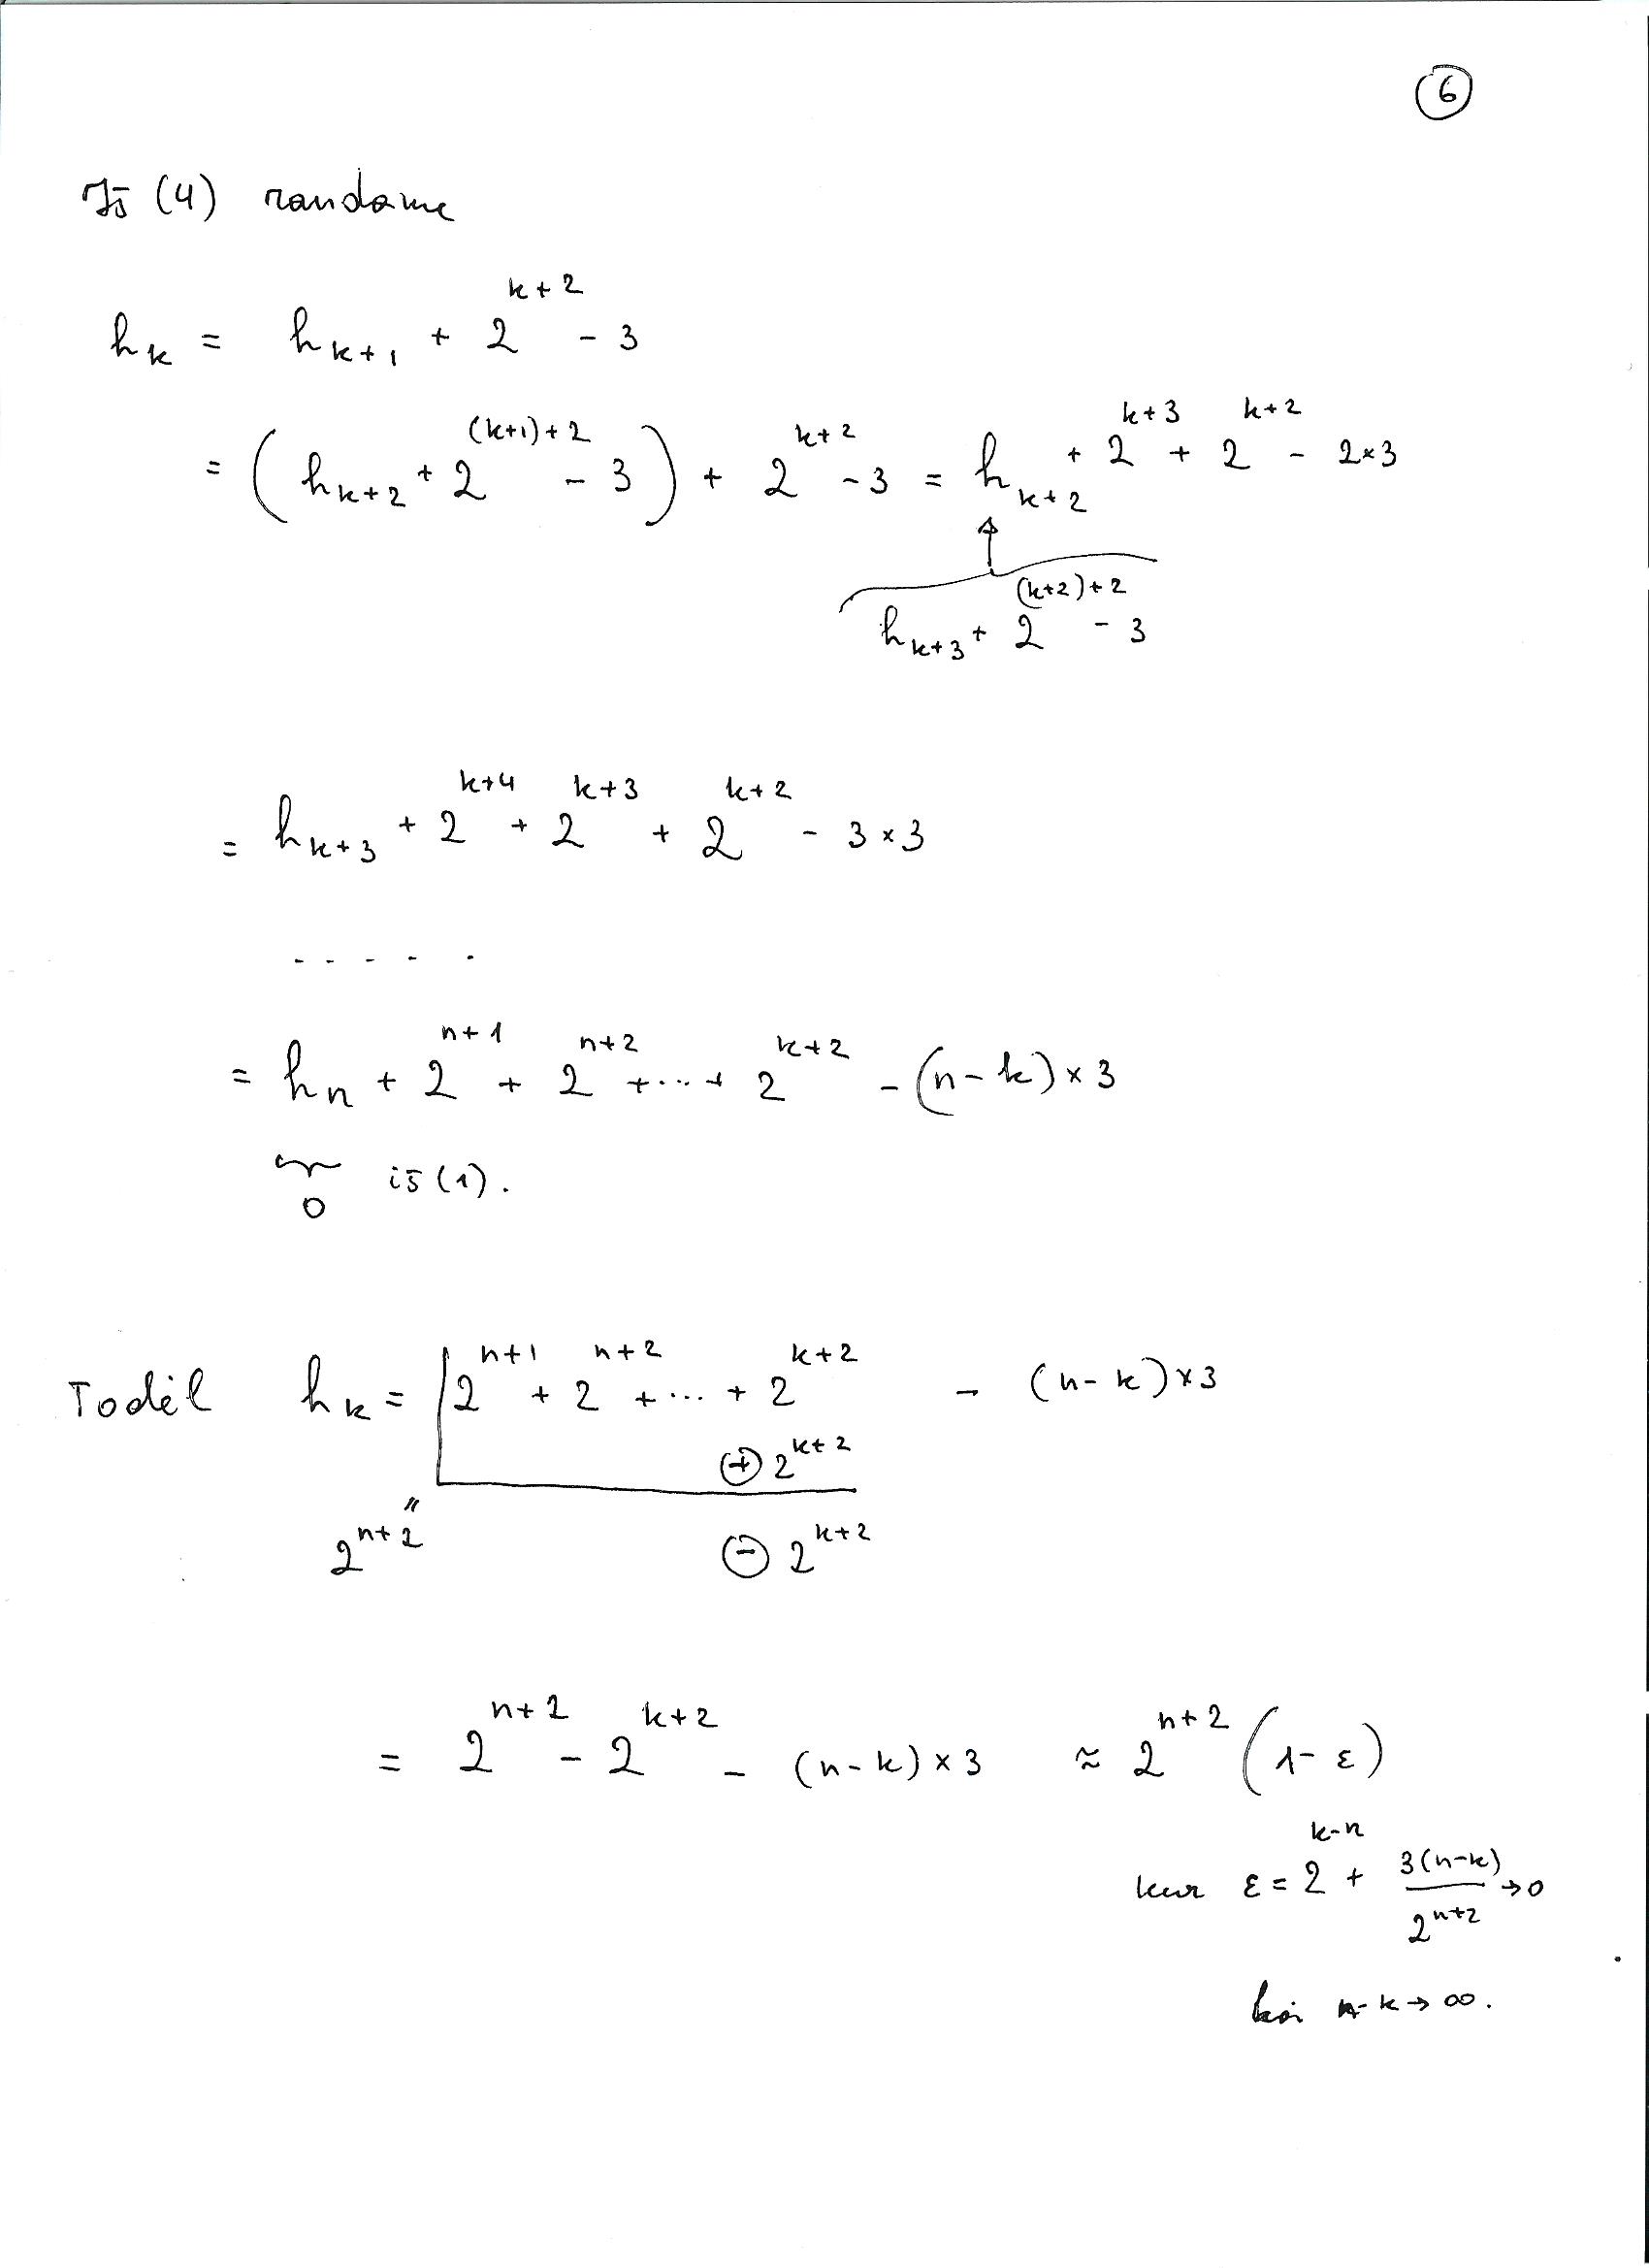 6
Iš (4) randame
h_k = h_{k+1} + 2^{k+2} - 3
= (h_{k+2} + 2^{(k+1)+2} - 3) + 2^{k+2} - 3 = h_{k+2} + 2^{k+3} + 2^{k+2} - 2×3
h_{k+3} + 2^{(k+2)+2} - 3
= h_{k+3} + 2^{k+4} + 2^{k+3} + 2^{k+2} - 3×3
.....
= h_n + 2^{n+1} + 2^{n+2} + ... + 2^{k+2} - (n-k)×3
0 iš (1).
Todėl h_k = 2^{n+1} + 2^{n+2} + ... + 2^{k+2} - (n-k)×3
⊕ 2^{k+2}
"
2^{n+2} ⊖ 2^{k+2}
= 2^{n+2} - 2^{k+2} - (n-k)×3 ≈ 2^{n+2} (1-ε)
kur ε = 2^{k-n} + \frac{3(n-k)}{2^{n+2}} → 0
kai n-k → ∞.